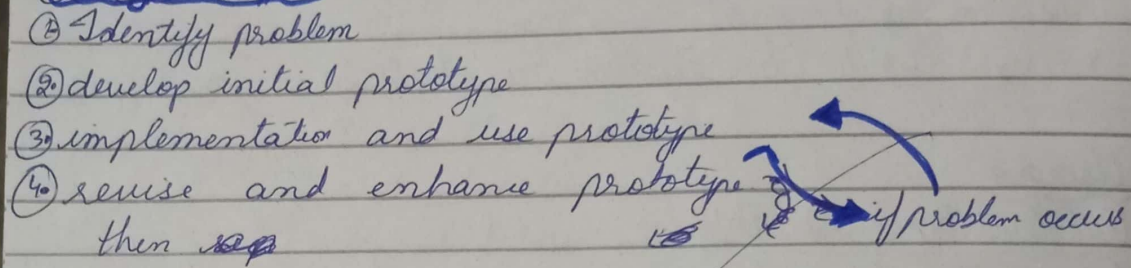 ① Identify problem
② develop initial prototype
③ implementation and use prototype
④ revise and enhance prototype if problem occurs
then